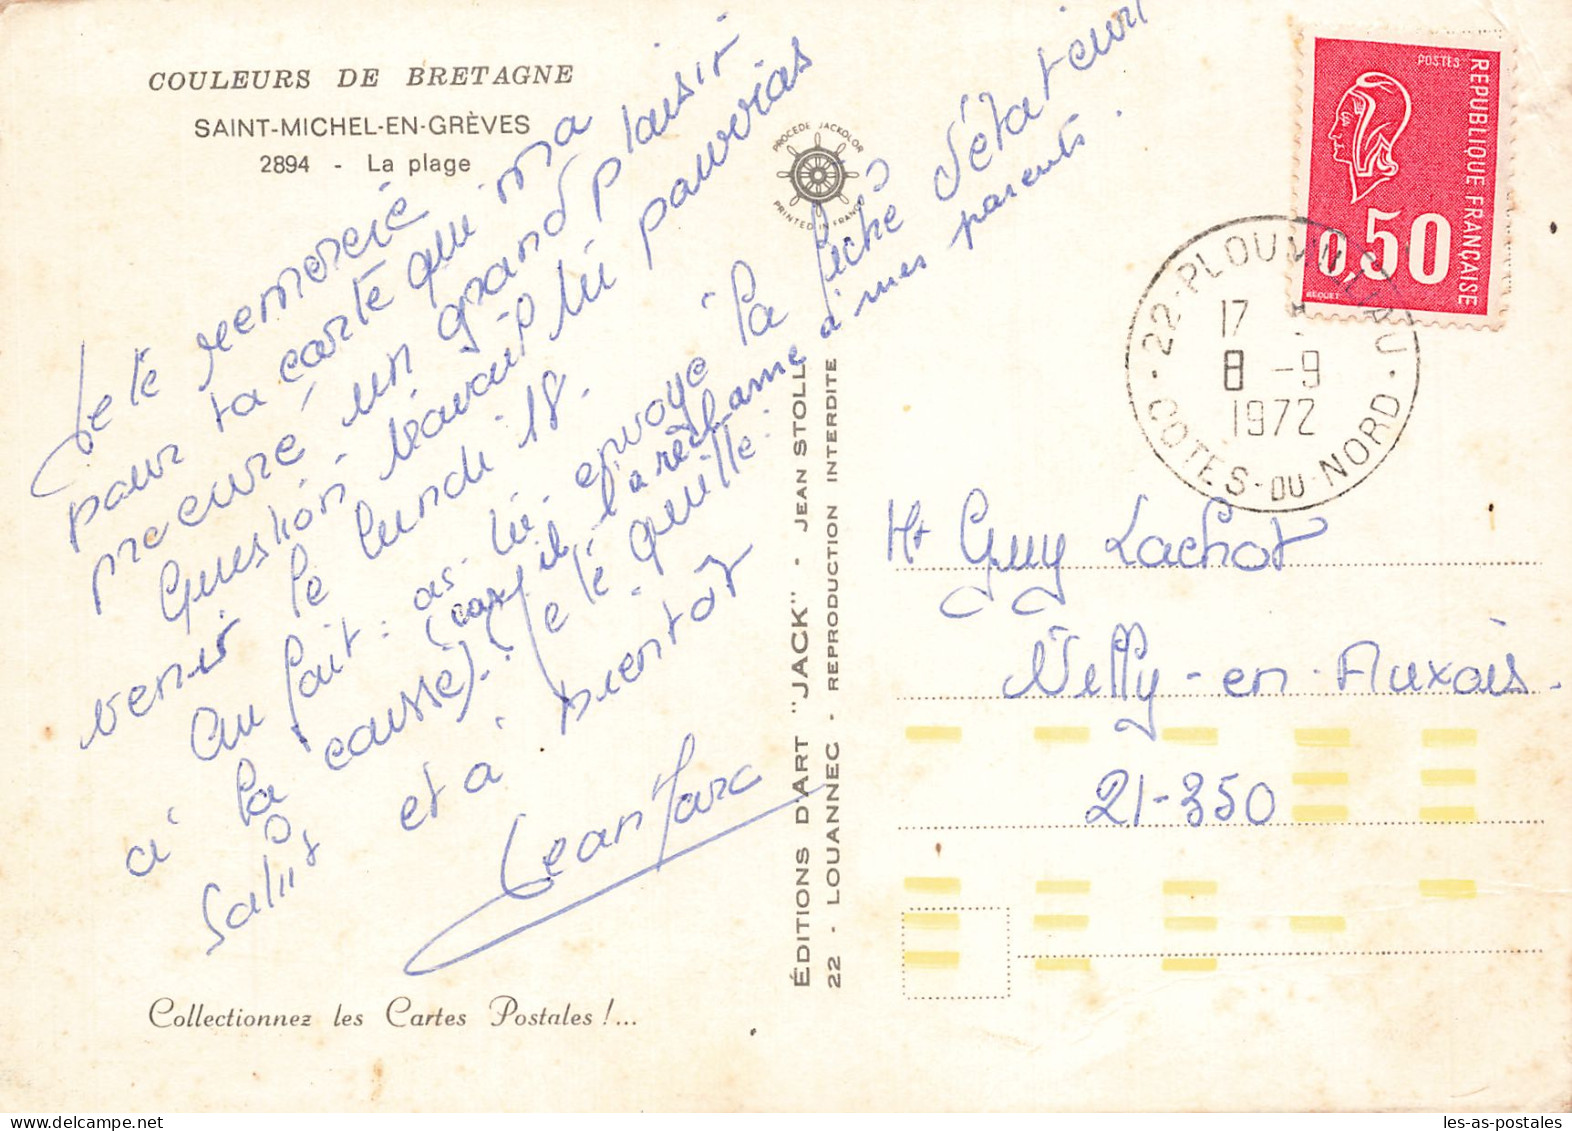 COULEURS DE BRETAGNE
SAINT-MICHEL-EN-GRÈVES
2894 - La plage
Je te remercie
pour ta carte qui m'a
procuré un grand plaisir
Question travail tu pouvais
venir le lundi 18.
Au fait : as-tu envoyé la fiche d'état civil
à la caisse). (car il l'a réclamé à mes parents.
Je te quitte.
Salut et à bientôt
Jean Marc
Collectionnez les Cartes Postales !...
PROCÉDÉ JACKOLOR
PRINTED IN FRANCE
ÉDITIONS D'ART "JACK" - JEAN STOLL
22 - LOUANNEC - REPRODUCTION INTERDITE
POSTES
REPUBLIQUE FRANÇAISE
0,50
BEQUET
22-PLOUMILLIAU
17
8 -9
1972
COTES-DU-NORD
Mr Guy Lachot
Villy-en-Auxois.
21-350
les-as-postales